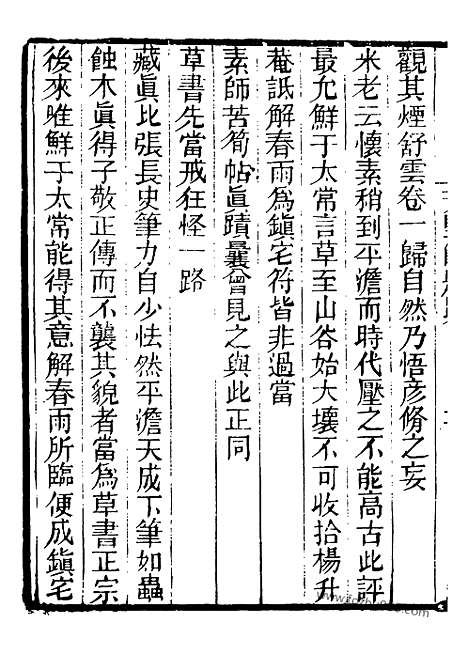 觀其煙舒雲卷一歸自然乃悟彦脩之妄
米老云懷素稍到平澹而時代壓之不能高古此評
最允鮮于太常言草至山谷始大壞不可收拾楊升
菴詆解春雨爲鎮宅符皆非過當
素師苦筍帖眞蹟曩曾見之與此正同
草書先當戒狂怪一路
藏眞比張長史筆力自少怯然平澹天成下筆如蟲
蝕木眞得子敬正傳而不襲其貌者當爲草書正宗
後來唯鮮于太常能得其意解春雨所臨便成鎮宅